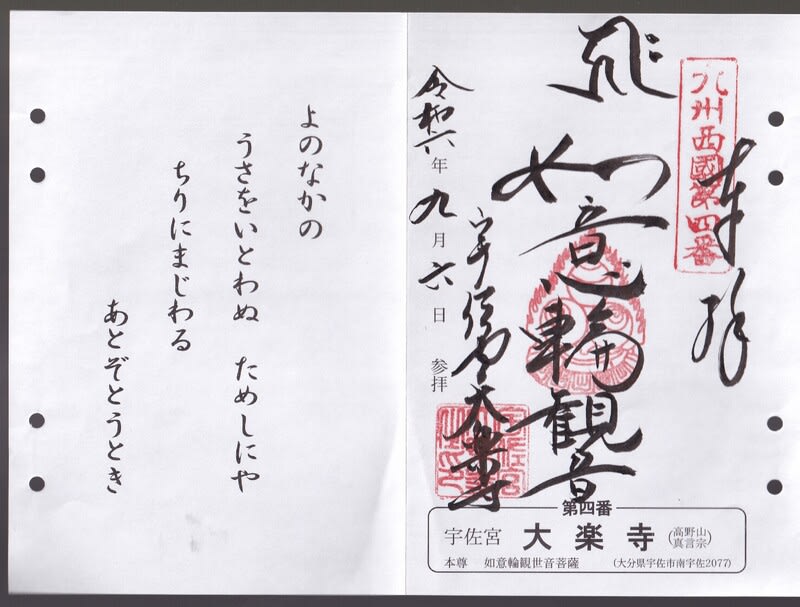 奉拝
九州西國第四番
如意輪観音
宇佐宮大楽寺
令和六年九月六日 参拝
第四番
宇佐宮 大楽寺 (高野山真言宗)
本尊 如意輪観世音菩薩 (大分県宇佐市南宇佐2077)
よのなかの
うさをいとわぬ ためしにや
ちりにまじわる
あとぞとうとき